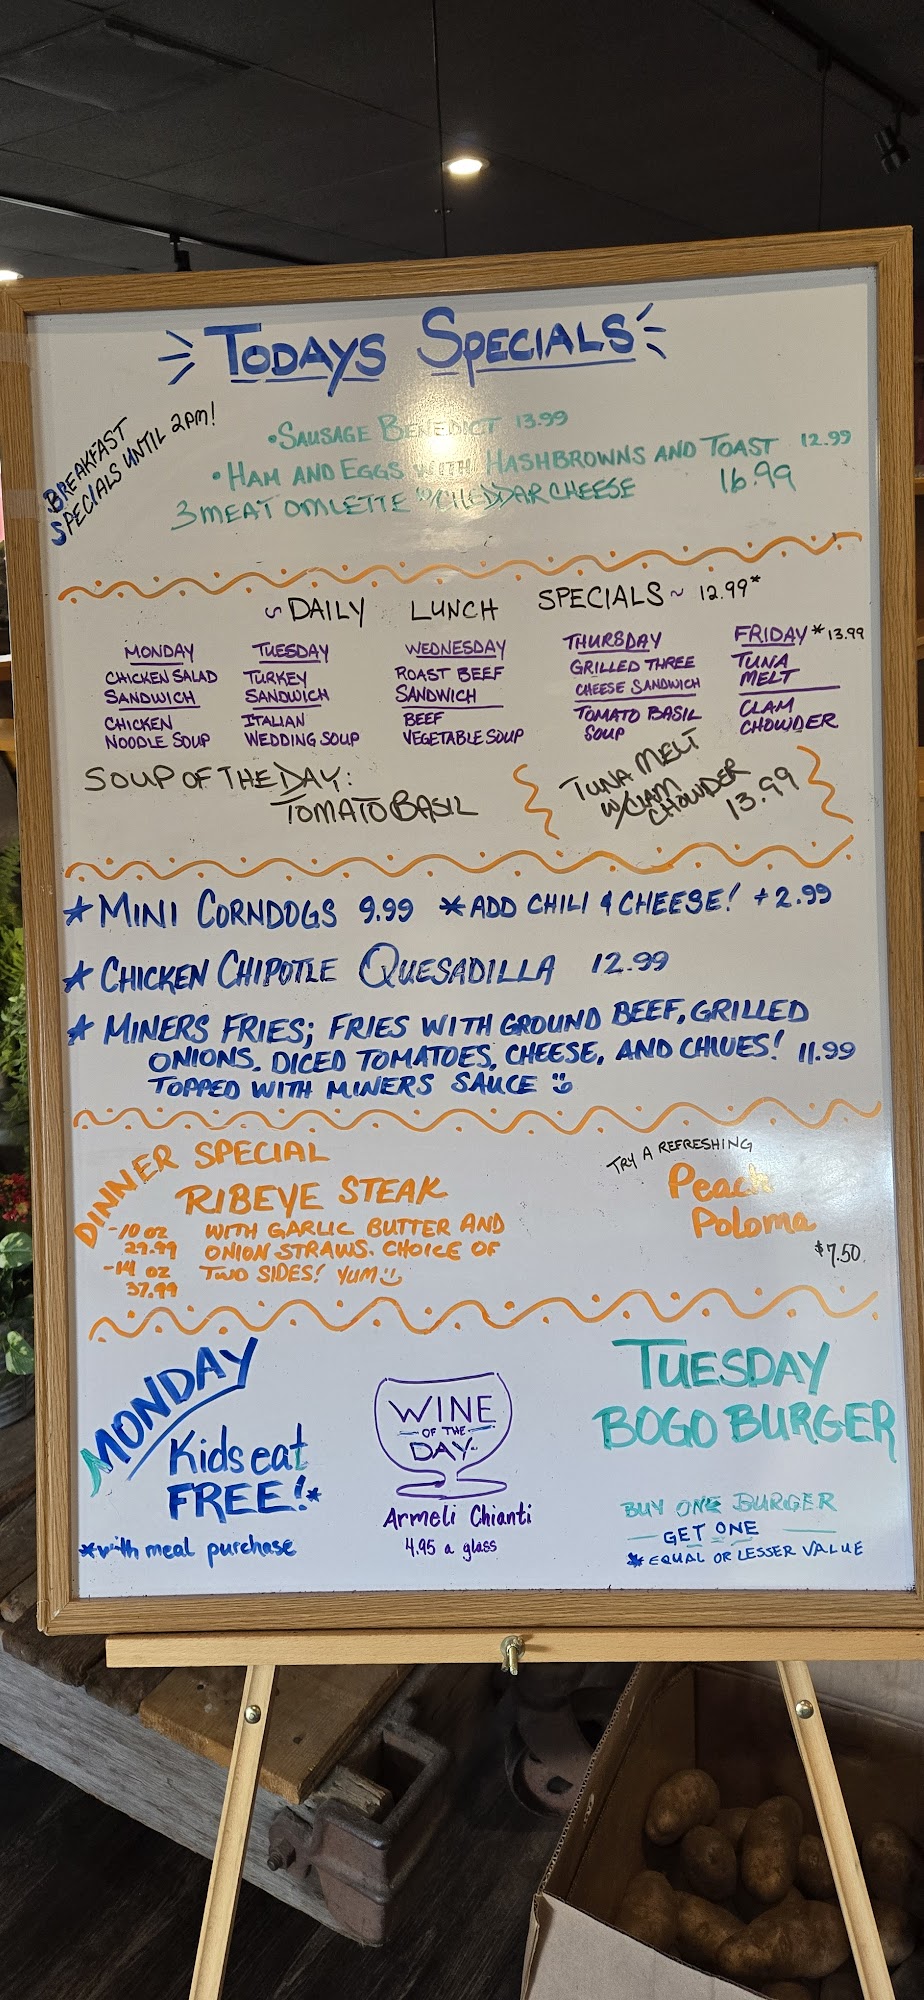 TODAYS SPECIALS
BREAKFAST
SPECIALS UNTIL 2PM!
•SAUSAGE BENEDICT 13.99
•HAM AND EGGS WITH HASHBROWNS AND TOAST 12.99
3 MEAT OMLETTE W/CHEDDAR CHEESE 16.99
~DAILY LUNCH SPECIALS~ 12.99*
MONDAY
CHICKEN SALAD
SANDWICH
CHICKEN
NOODLE SOUP
TUESDAY
TURKEY
SANDWICH
ITALIAN
WEDDING SOUP
WEDNESDAY
ROAST BEEF
SANDWICH
BEEF
VEGETABLE SOUP
THURSDAY
GRILLED THREE
CHEESE SANDWICH
TOMATO BASIL
SOUP
FRIDAY *13.99
TUNA
MELT
CLAM
CHOWDER
SOUP OF THE DAY:
TOMATO BASIL
TUNA MELT
W/CLAM
CHOWDER
13.99
★ MINI CORNDOGS 9.99 *ADD CHILI & CHEESE! +2.99
★ CHICKEN CHIPOTLE QUESADILLA 12.99
★ MINERS FRIES; FRIES WITH GROUND BEEF, GRILLED
ONIONS. DICED TOMATOES, CHEESE, AND CHIVES! 11.99
TOPPED WITH MINERS SAUCE
DINNER SPECIAL
RIBEYE STEAK
-10 oz
29.99
-14 oz
37.99
WITH GARLIC BUTTER AND
ONION STRAWS. CHOICE OF
TWO SIDES! YUM
TRY A REFRESHING
Peach
Poloma
$7.50
MONDAY
Kids eat
FREE!*
*with meal purchase
WINE
-OF THE-
DAY
Armeli Chianti
4.95 a glass
TUESDAY
BOGO BURGER
BUY ONE BURGER
GET ONE
*EQUAL OR LESSER VALUE